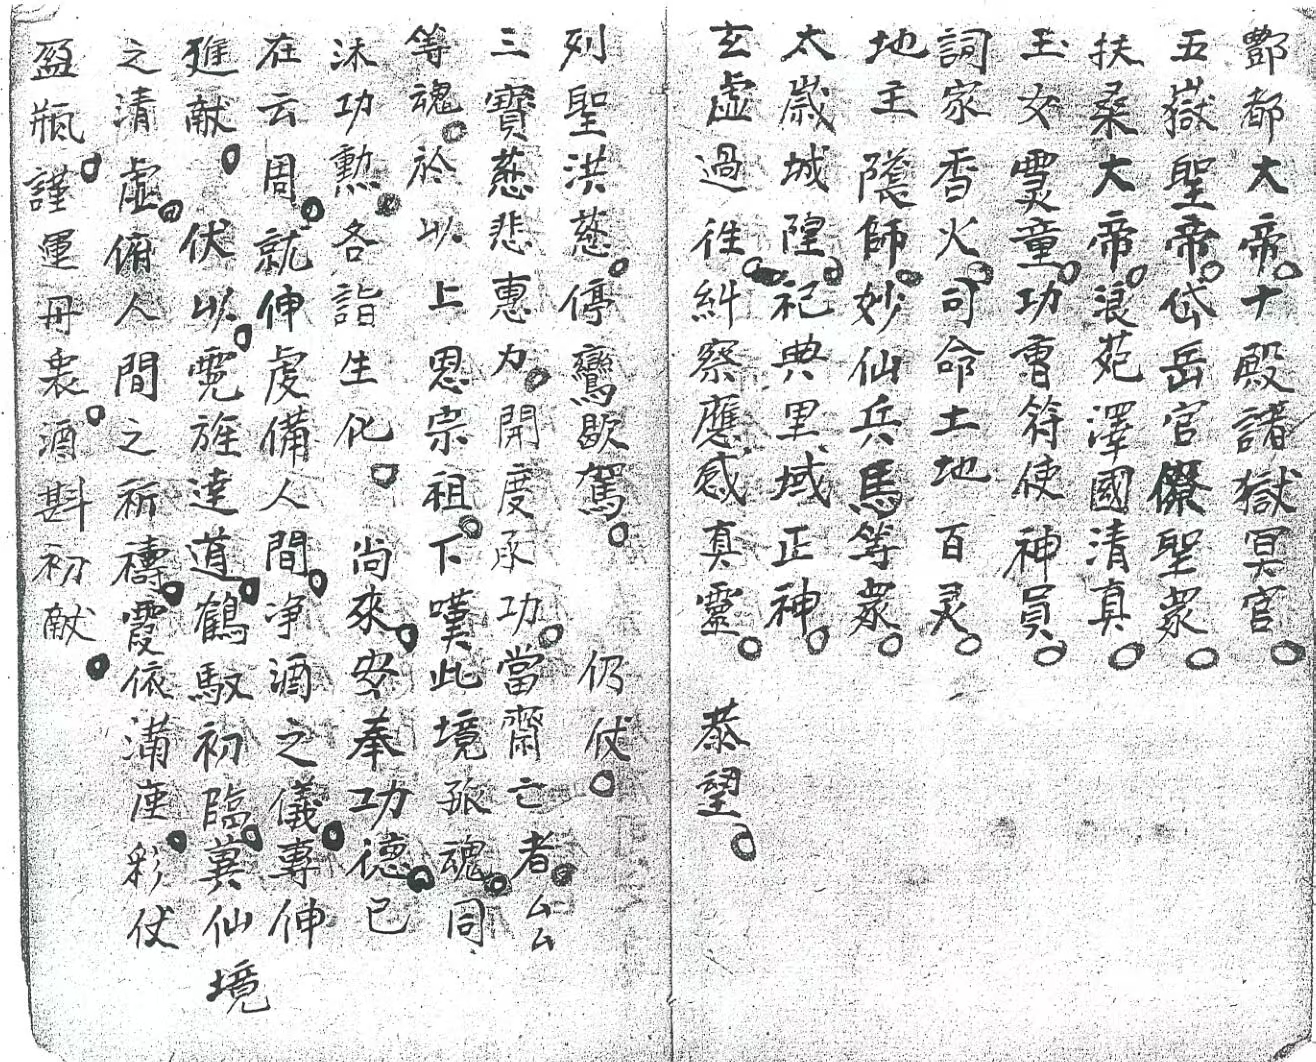 酆都大帝。十殿諸獄冥官。
五嶽聖帝。岱岳官僚聖衆。
扶桑大帝。浪苑澤國清真。
玉女霛童。功曹符使神員。
詞家香火。司命土地百灵。
地主隂師。妙仙兵馬等衆。
太歲城隍。祀典里域正神。
玄虛過徃。糾察應感真靈。恭望。
列聖洪慈。停鸞歇駕。仍仗。
三寶慈悲惠力。開度承功。當齋亡者。厶厶
等魂。於以上恩宗祖。下嘆此境孤魂。同
沐功勲。各詣生化。尚來。安奉功德。已
在云周。就伸虔備人間。净酒之儀。專伸
進献。伏以。霓旌達道。鶴馭初臨。冀仙境
之清虛。俯人間之祈禱。霞依滿座。彩仗
盈瓶。謹運丹衷。酒斟初献。